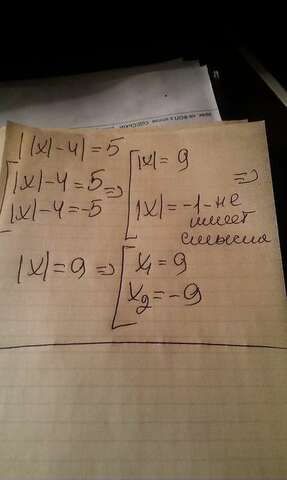 ||x|-4|=5
[|x|-4=5 => [|x|=9 =>
|x|-4=-5 |x|=-1-не
имеет
смысла
|x|=9 => [x₁=9
x₂=-9